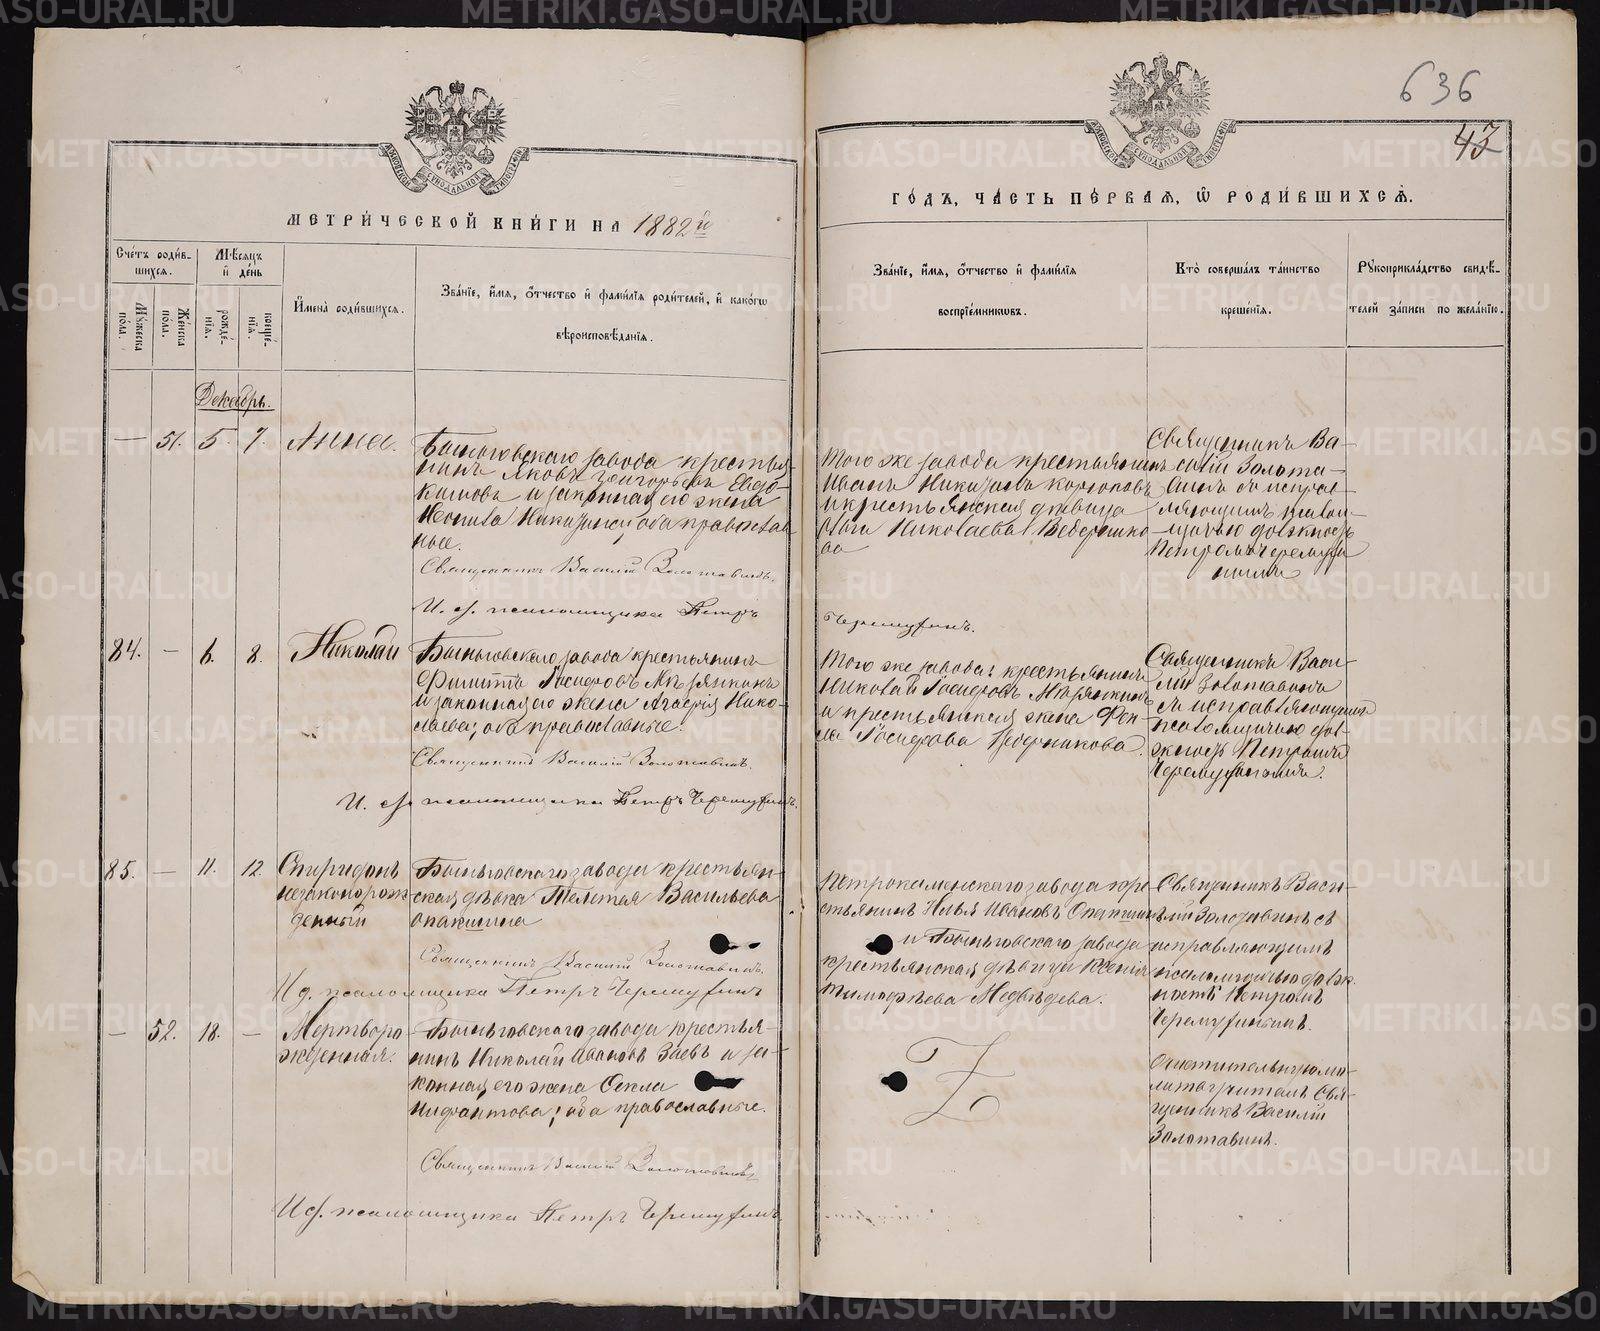 636
43
МЕТРИ́ЧЕСКОЙ КНИ́ГИ НА 1882й
ГО́ДЪ, ЧА́СТЬ ПЕ́РВАЯ, Ѡ҆ РОДИ́ВШИХСЯ.
Счётъ роди́в-
шихся.
Му́жеска
по́ла.
Же́нска
по́ла.
Мѣ́сяцъ
и҆ де́нь
рожде́-
нїя.
креще́-
нїя.
И҆мена̀ роди́вшихся.
Зва́нїе, и҆́мя, ѻ҆́тчество и҆ фами́лїя роди́телей, и҆ како́гѡ
вѣроисповѣ́данїя.
Зва́нїе, и҆́мя, ѻ҆́тчество и҆ фами́лїя
воспрїе́мниковъ.
Кто̀ соверша́лъ та́инство
креще́нїя.
Рꙋкоприкла́дство свидѣ́-
телей за́писи по жела́нїю.
Декабрь.
— 51. 5. 7. Анна.
Быньговскаго завода крестья-
нинъ Яковъ Григорьевъ Евдо-
кимовъ и законная его жена
Никитина, оба православ-
ные.
Священникъ Василій Золотавинъ.
И. д. псаломщика Петръ
Того же завода крестьянинъ
Иванъ Никитинъ
и крестьянская дѣвица
Ольга Николаева Ведернико-
ва
Черемухинъ.
Священникъ Ва-
силій Золота-
винъ съ исправ-
ляющимъ псалом-
щичью должность
Петромъ Черемухи-
нымъ
84. — 6. 8. Николай
Быньговскаго завода крестьянинъ
Филиппъ Іосифовъ Мѣрянкинъ
и законная его жена Агафія Нико-
лаева, оба православные.
Священникъ Василій Золотавинъ.
И. д. псаломщика Петръ Черемухинъ.
Того же завода: крестьянинъ
Николай Іосифовъ Мѣрянкинъ
и крестьянская жена Фек-
ла Іосифова Ведерникова.
Священникъ Васи-
лій Золотавинъ
съ исправляющимъ
псаломщичью дол-
жность Петромъ
Черемухинымъ.
85. — 11. 12. Спиридонъ
незаконорож-
денный
Быньговскаго завода крестьян-
ская дѣвка Васильева
Опакшина
Священникъ Василій Золотавинъ.
И д. псаломщика Петръ Черемухинъ
Петрокаменскаго завода кре-
стьянинъ Илья Ивановъ Опакшинъ
и Быньговскаго завода
крестьянская дѣвица Ксенія
Тимофѣева Медвѣдева.
Священникъ Васи-
лій Золотавинъ съ
исправляющимъ
псаломщичью долж-
ность Петромъ
Черемухинымъ.
— 52. 18. — Мертворо
жденная.
Быньговскаго завода крестья-
нинъ Николай Ивановъ Заевъ и за-
конная его жена Фекла
Нифантова, оба православные.
Священникъ Василій Золотавинъ
И д. псаломщика Петръ Черемухинъ.
Очистительную мо-
литву читалъ Свя-
щенникъ Василій
Золотавинъ.
METRIKI.GASO-URAL.RU